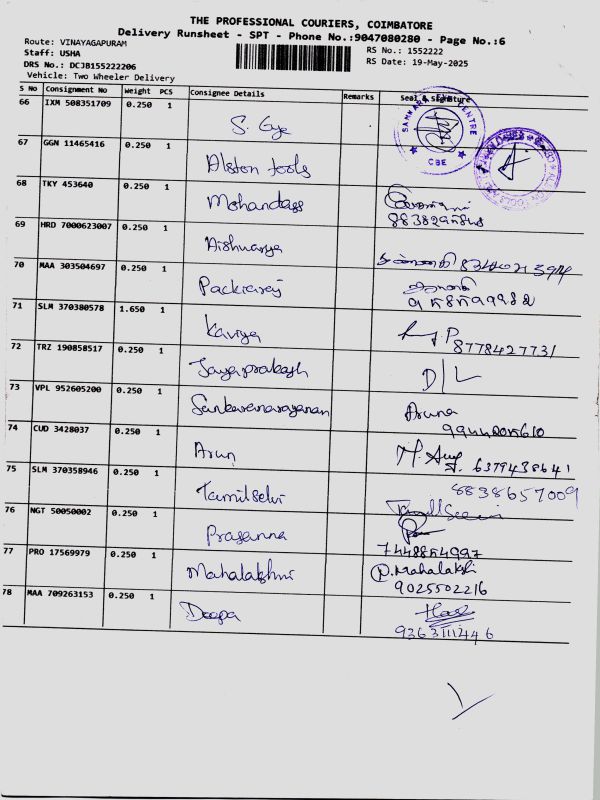 THE PROFESSIONAL COURIERS, COIMBATORE
Delivery Runsheet - SPT - Phone No.:9047080280 - Page No.:6
Route: VINAYAGAPURAM
RS No.: 1552222
Staff: USHA
RS Date: 19-May-2025
DRS No.: DCJB155222206
Vehicle: Two Wheeler Delivery
S No Consignment No Weight PCS Consignee Details Remarks Seal & Signature
66 IXM 508351709 0.250 1
S. Eye
SANKARA EYE CENTRE
CBE
67 GGN 11465416 0.250 1
Alston tools
68 TKY 453640 0.250 1
Mohandass
69 HRD 7000623007 0.250 1
Aishwarya
70 MAA 303504697 0.250 1
Packiaraj
71 SLM 370380578 1.650 1
Kaviya
8778427731
72 TRZ 190858517 0.250 1
Jayaprakash D/L
73 VPL 952605200 0.250 1
Sankaranarayanan Aruna
74 CUD 3428037 0.250 1
Arun 6379438641
75 SLM 370358946 0.250 1
8838657009
Tamilselvi
76 NGT 50050002 0.250 1
Prasanna
77 PRO 17569979 0.250 1
Mahalakshmi P.Mahalakshi
9025502216
78 MAA 709263153 0.250 1
Deepa